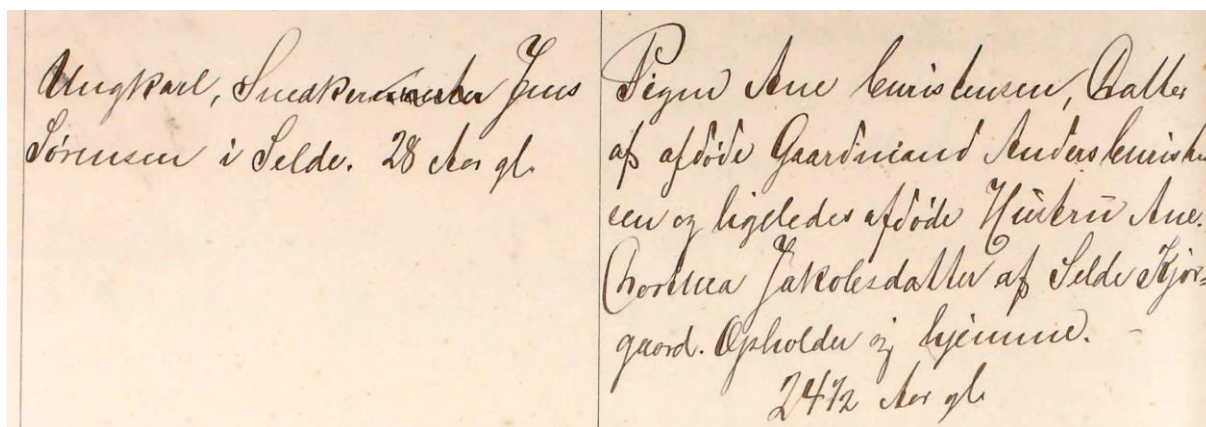 Ungkarl, Snedkermester Jens
Sørensen i Selde. 28 Aar gl.
Pigen Ane Christensen, Datter
af afdøde Gaardmand Anders Christen
sen og ligeledes afdøde Hustru Ane
Dorthea Jakobsdatter af Selde Kjær=
gaard. Opholder sig hjemme.
24 1/2 Aar gl.